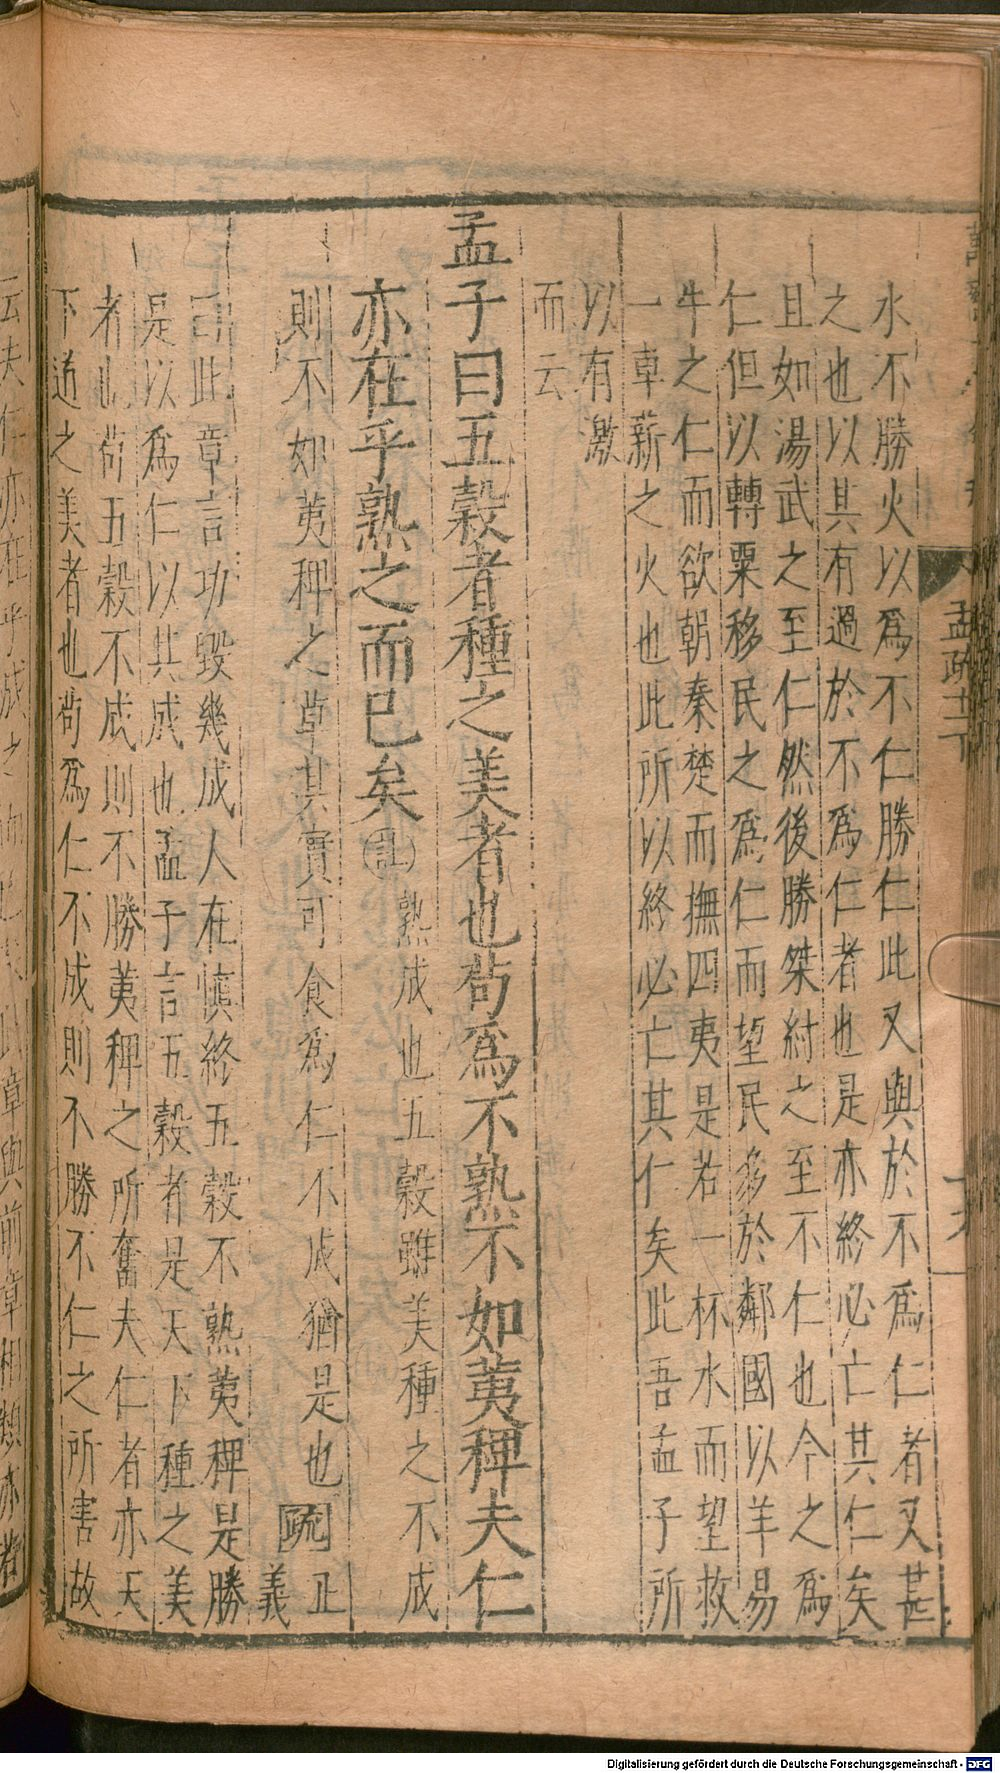 孟疏十一下
水不勝火以爲不仁勝仁此又與於不爲仁者又甚
之也以其有過於不爲仁者也是亦終必亡其仁矣
且如湯武之至仁然後勝桀紂之至不仁也今之爲
仁但以轉粟移民之爲仁而望民多於鄰國以羊易
牛之仁而欲朝秦楚而撫四夷是若一杯水而望救
一車薪之火也此所以終必亡其仁矣此吾孟子所
以有激
而云
孟子曰五穀者種之美者也苟爲不熟不如荑稗夫仁
亦在乎熟之而已矣註熟成也五穀雖美種之不成
則不如荑稗之草其實可食爲仁不成猶是也疏正
義
曰此章言功毀幾成人在慎終五穀不熟荑稗是勝
是以爲仁以其成也孟子言五穀者是天下種之美
者也苟五穀不成則不勝荑稗之所奮夫仁者亦天
下道之美者也苟爲仁不成則不勝不仁之所害故
云夫仁亦在乎成之而已矣此章與前章相類亦若
Digitalisierung gefördert durch die Deutsche Forschungsgemeinschaft - DFG